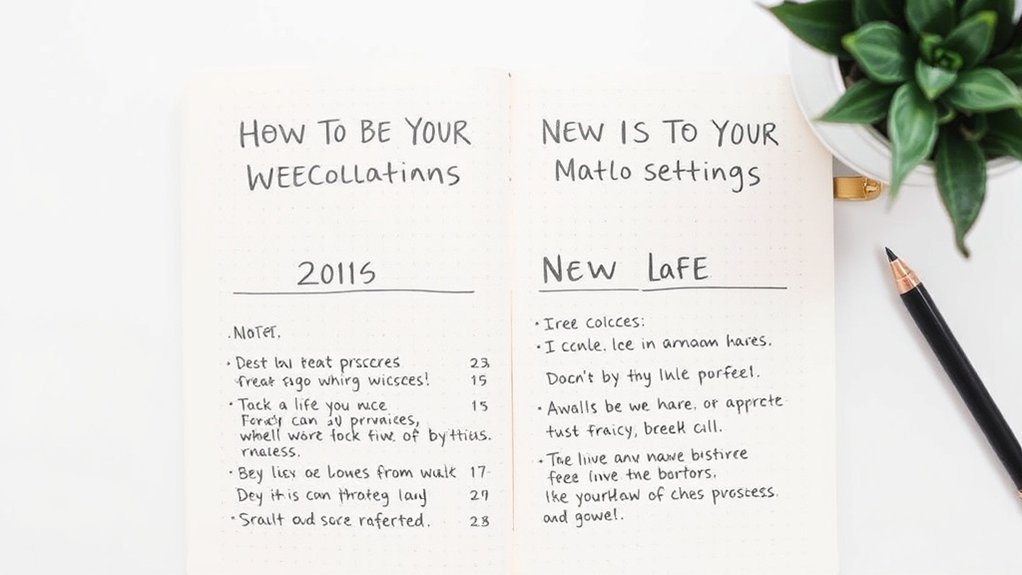 HOW TO BE YOUR
WEECollatinns
2011S
.Notet.
• Dest lal teat prsccres 23
freat sgo whirg wicsces! 15
• Tack a life you nuce 15
can prvnaices,
whell worc fock fiw. of
rnaless.
• Bey licx oe lowes from walk 17
Dey it is can thrateg lauy 27
• Srault aud socc raferted. 28
NEW IS TO YOUR
Matlo settings
NEW LafE
• Iree colcces:
• I ccnle. lce in arnaan hares.
Docn't by thy lnle porfeel.
• Awalls be we hare, or apprcte
tust fraicy, breek call.
• The live anv nauve bistirce
feee live the bortors.
lke yourlaw of ches prostess.
and gowel.